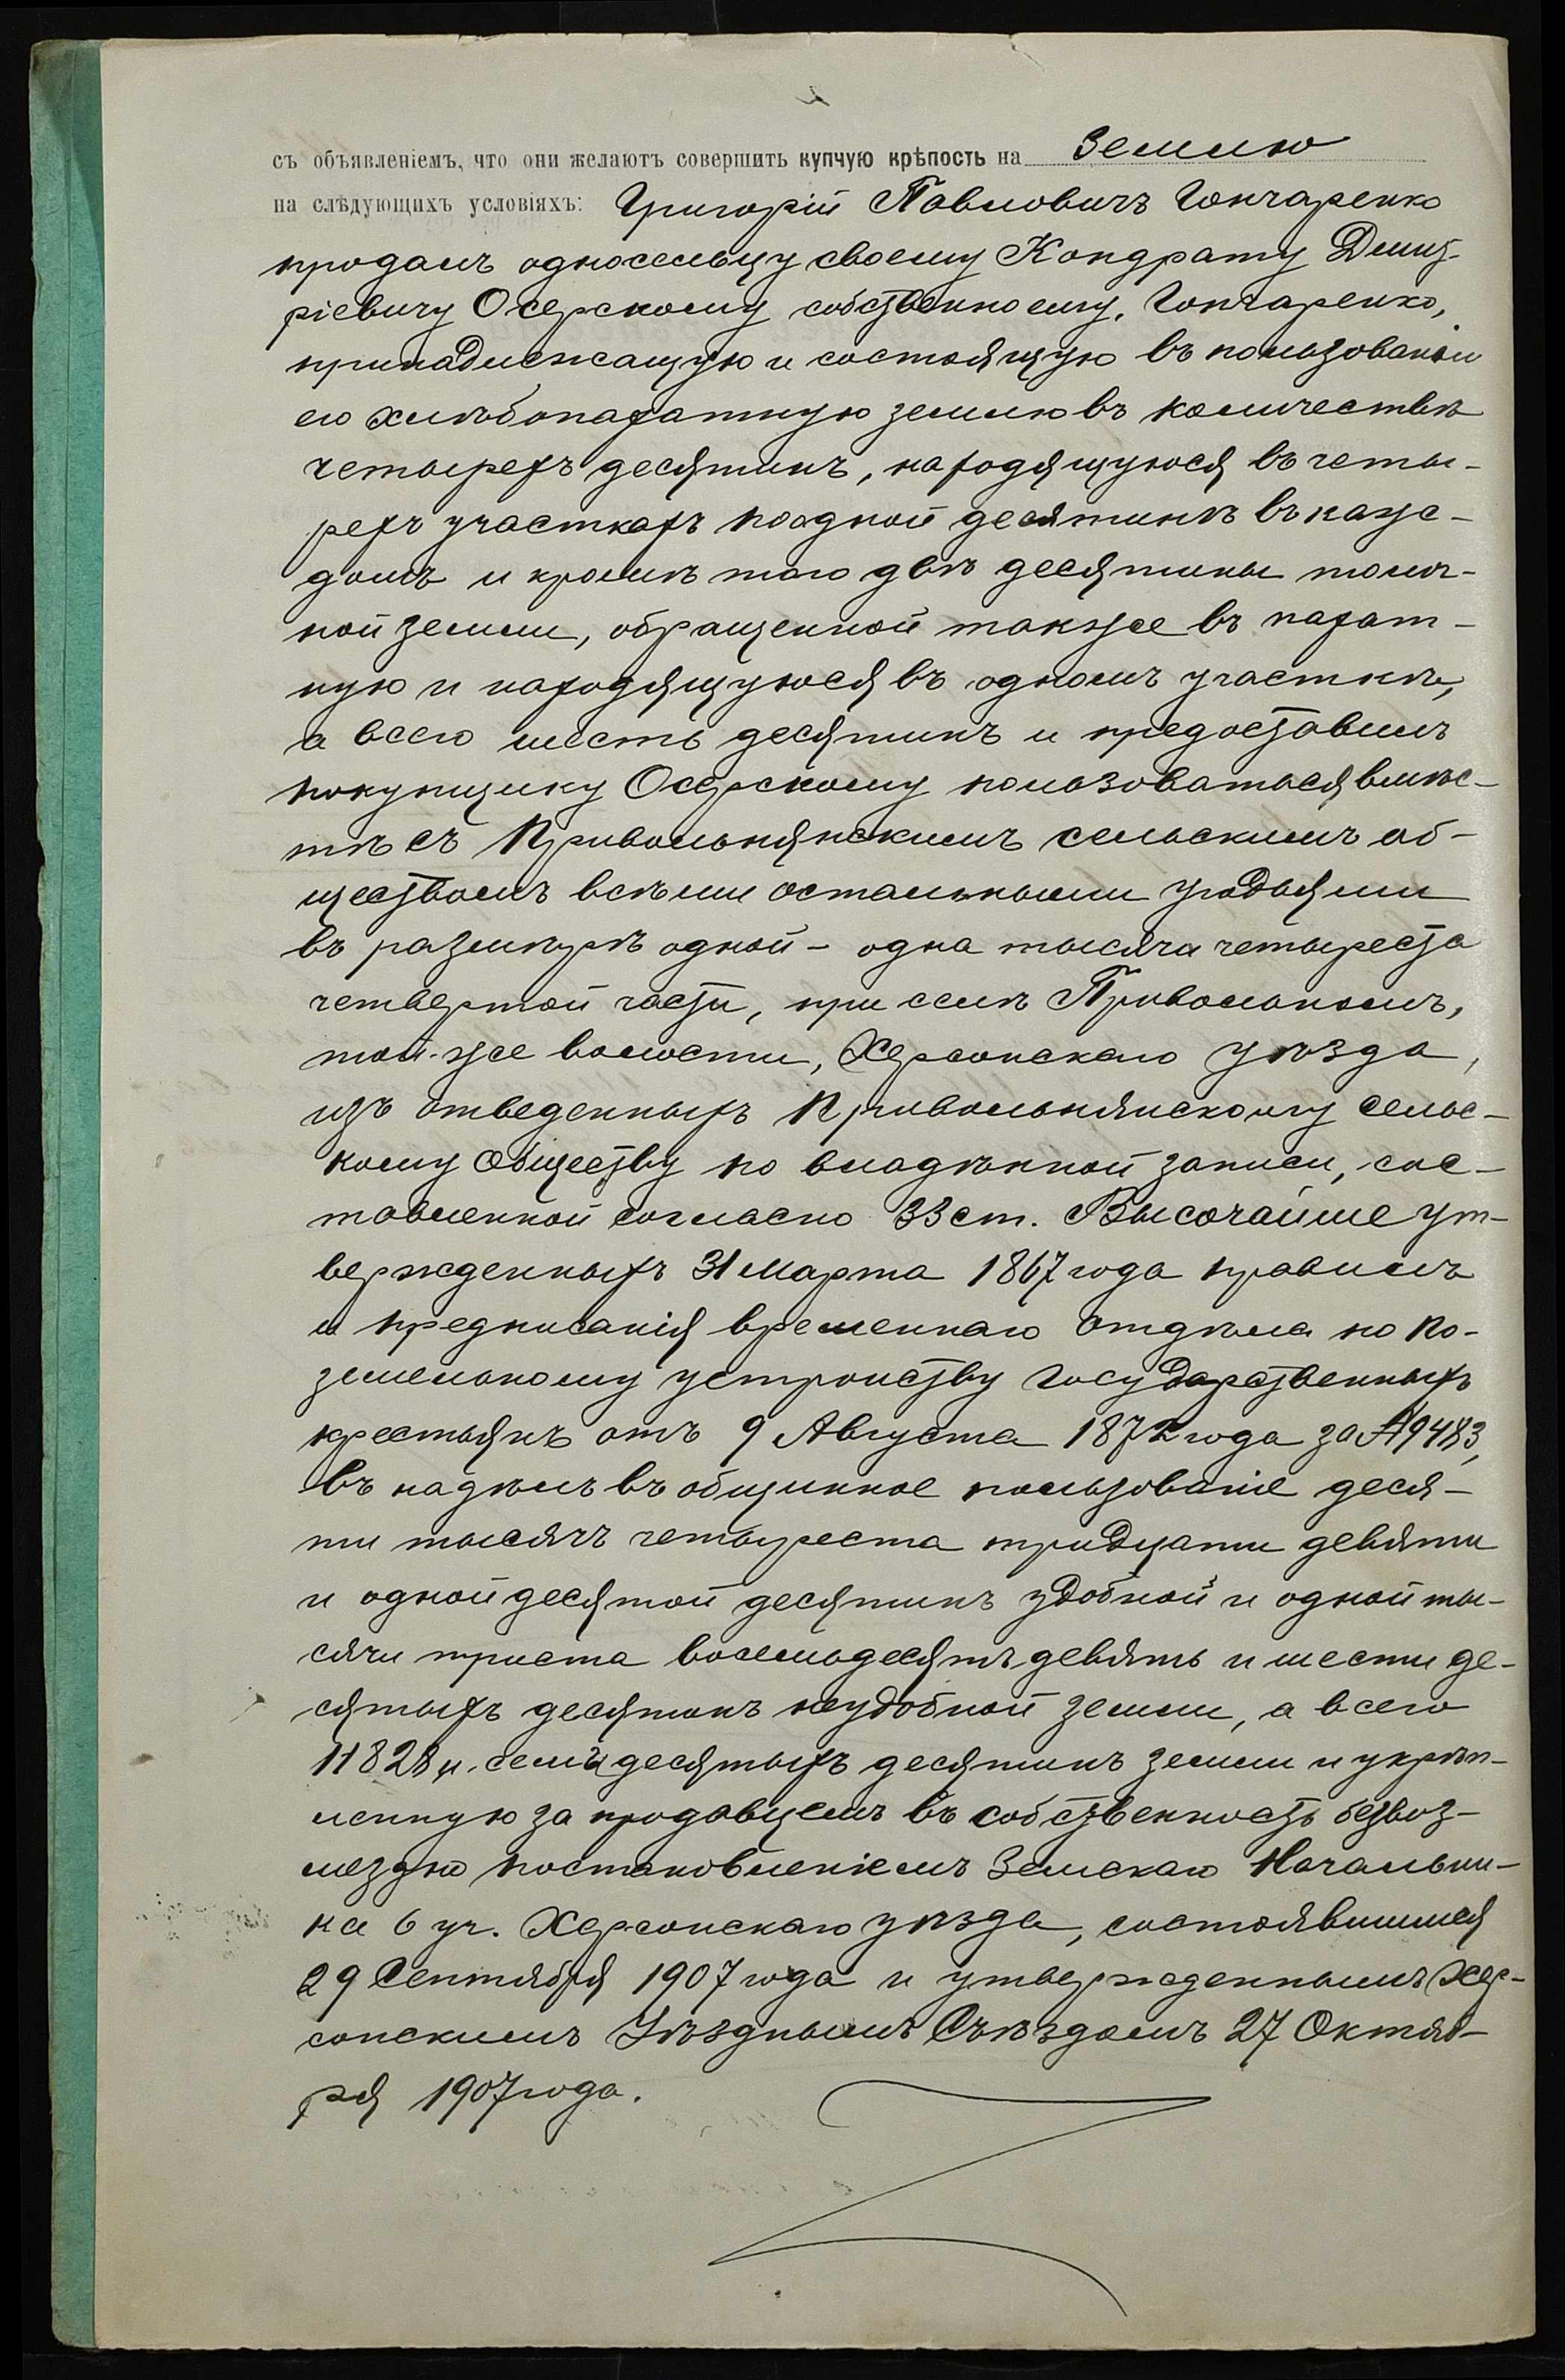 съ объявленіемъ, что они желаютъ совершить купчую крѣпость на Землю
на слѣдующихъ условіяхъ: Григорій Павловичъ Гончаренко
продалъ односельцу своему Кондрату Дмит-
ріевичу Осерскому собственно ему, Гончаренко,
принадлежащую и состоящую въ пользованіи
его хлѣбопахатную землю въ количествѣ
четырехъ десятинъ, находящуюся въ четы-
рехъ участкахъ по одной десятинѣ въ каж-
домъ и кромѣ того двѣ десятины толоч-
ной земли, обращенной также въ пахат-
ную и находящуюся въ одномъ участкѣ,
а всего шесть десятинъ и предоставилъ
покупщику Осерскому пользоваться вмѣс-
тѣ съ Привольнянскимъ сельскимъ об-
ществомъ всѣми остальными угодьями
въ размѣрѣ одной - одна тысяча четыреста
четвертой части, при селѣ Привольномъ,
той-же волости, Херсонскаго уѣзда,
изъ отведенныхъ Привольнянскому сельс-
кому Обществу по владѣнной записи, сос-
тавленной согласно 33 ст. Высочайше ут-
вержденныхъ 31 Марта 1867 года правилъ
и предписанія временнаго отдѣла по по-
земельному устройству Государственныхъ
крестьянъ отъ 9 Августа 1872 года за № 9483,
въ надѣлъ въ общинное пользованіе деся-
ти тысячъ четыреста тридцати девяти
и одной десятой десятинъ удобной и одной ты-
сячи триста восемьдесятъ девять и шести де-
сятыхъ десятинъ неудобной земли, а всего
11828 и семь десятыхъ десятинъ земли и укрѣп-
ленную за продавцемъ въ собственность безвоз-
мездно постановленіемъ Земскаго Начальни-
ка 6 уч. Херсонскаго уѣзда, состоявшимся
29 Сентября 1907 года и утвержденнымъ Хер-
сонскимъ Уѣзднымъ Съѣздомъ 27 Октяб-
ря 1907 года.